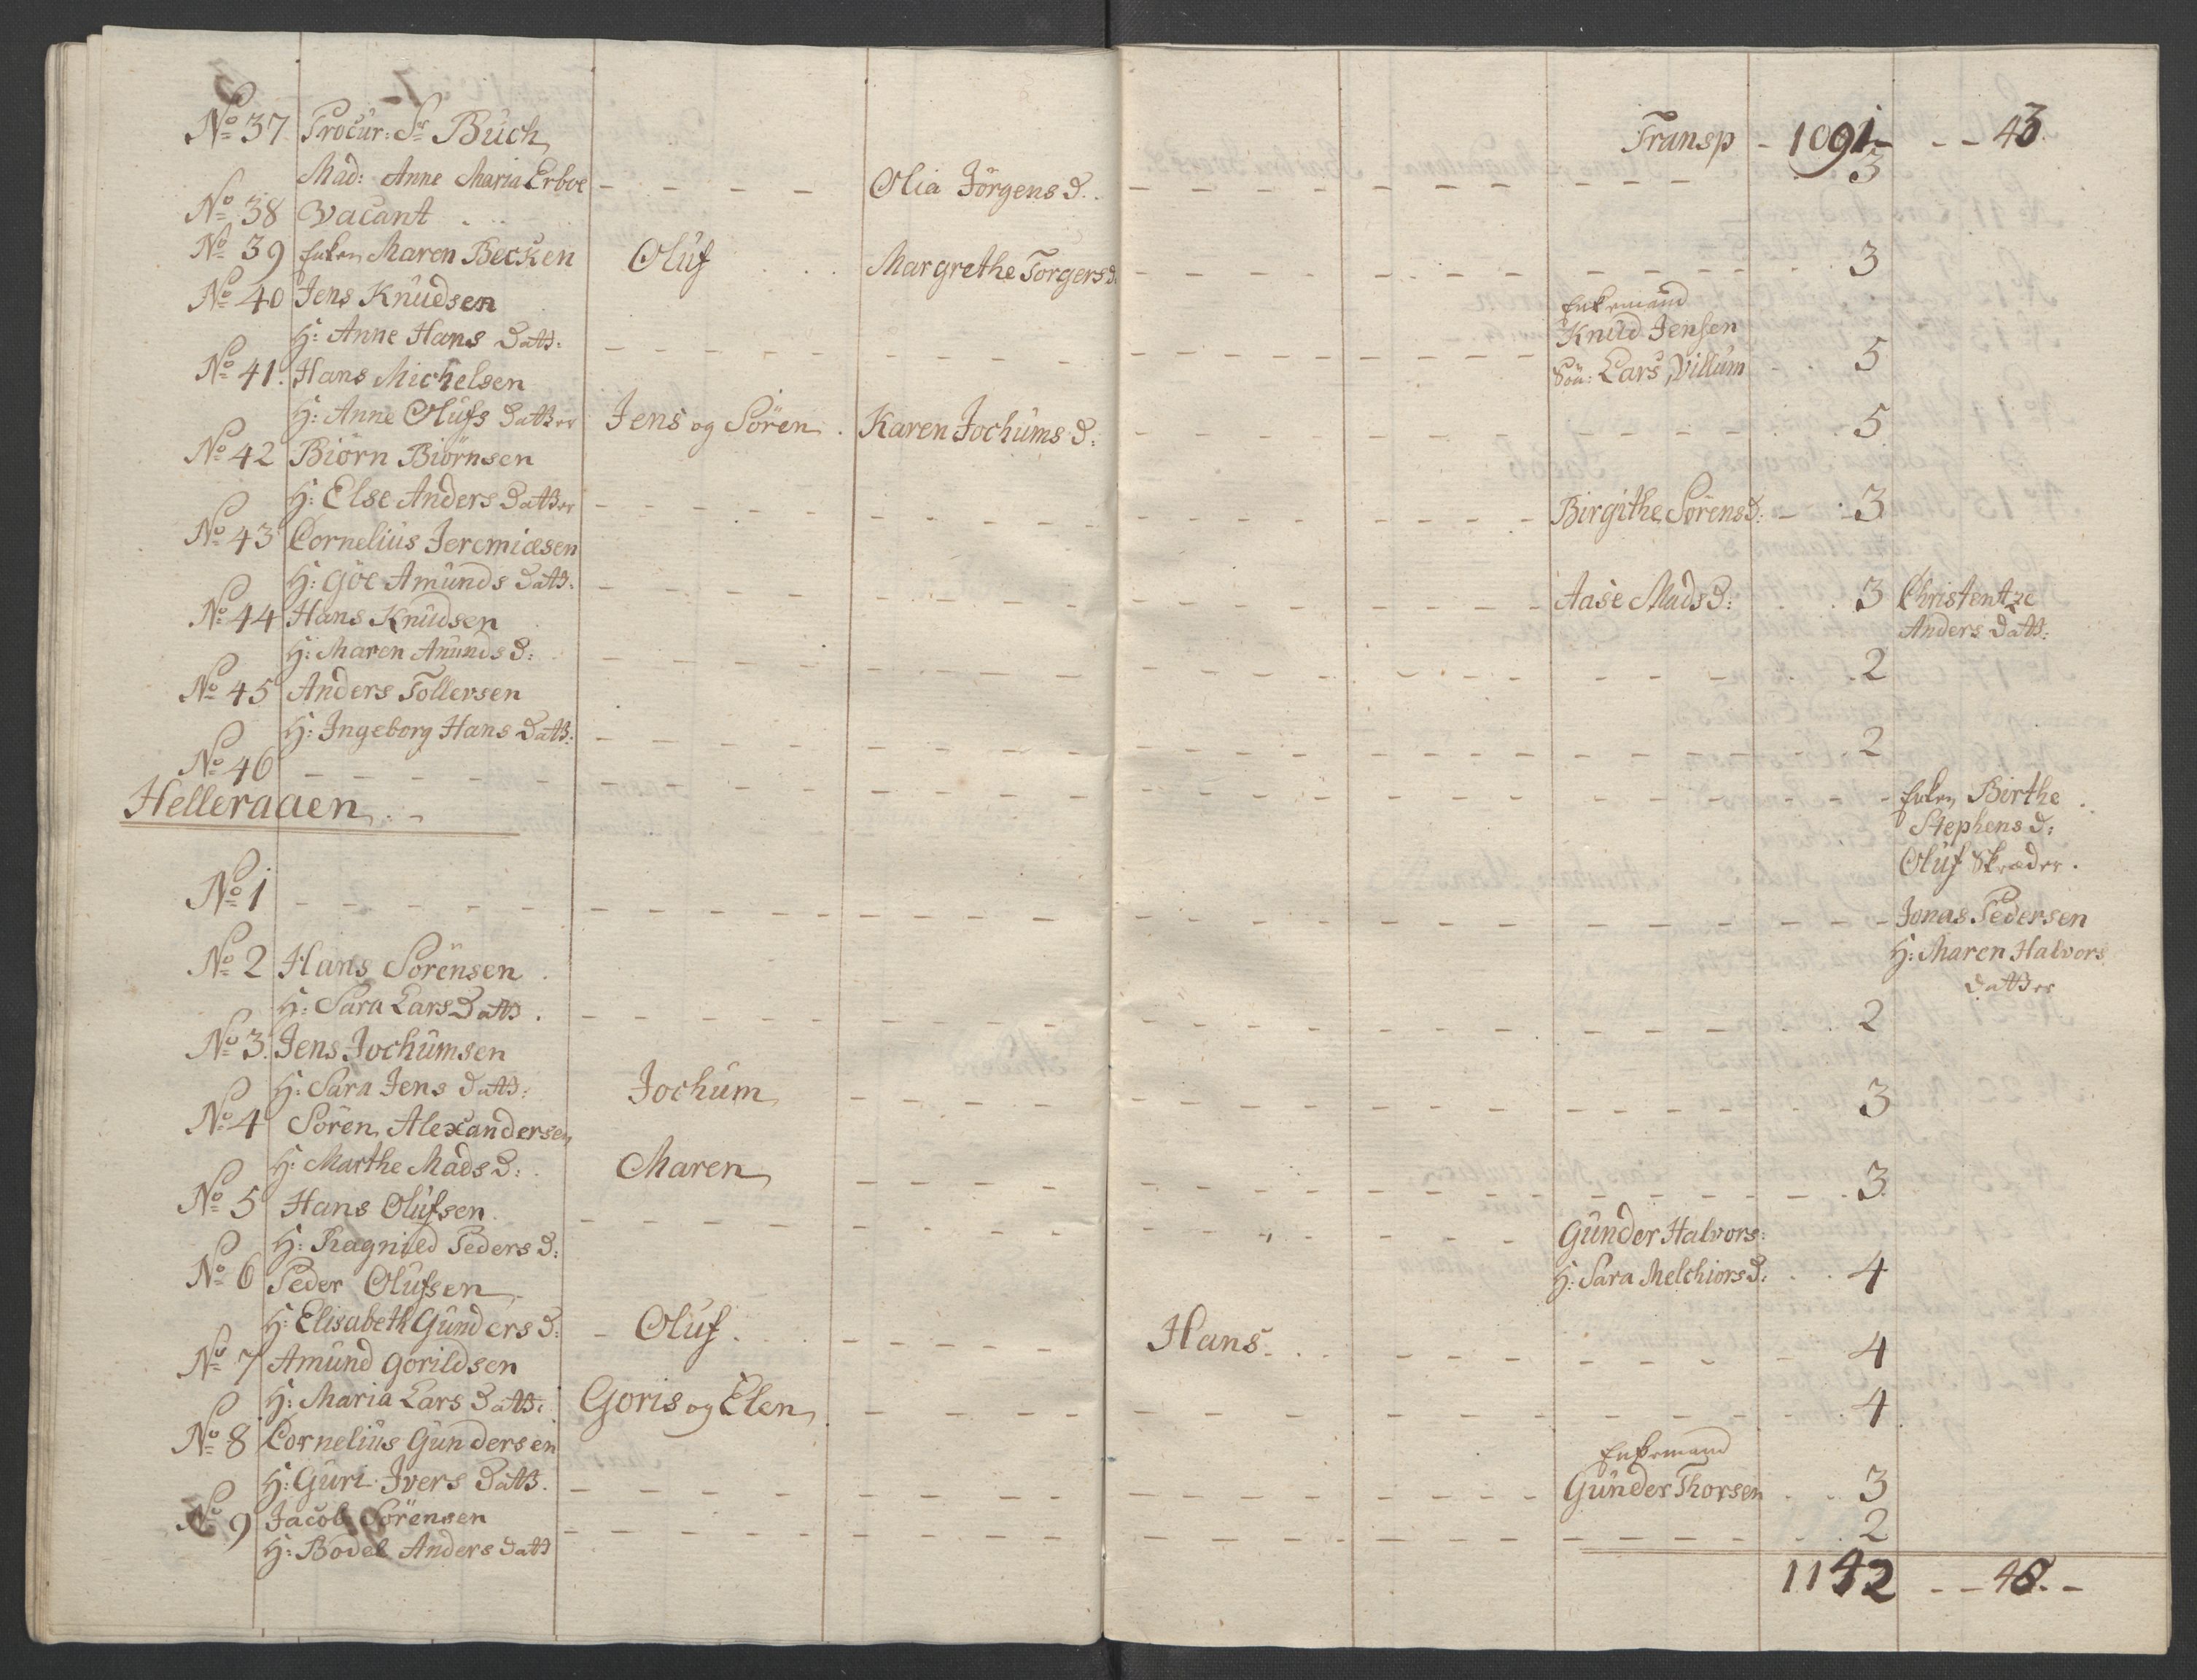 Transp - 1091 - - - 43.
No 37. Procur: Sr Buch
Mad: Anne Maria Erboe - - - - Olia Jörgens D. - - - - 3
No 38 Vacant
No 39 Enken Maren Becken Oluf Margrethe Torgers D. - - - - 3
No 40 Jens Knudsen Enkemand
H: Anne Hans Datt: - - - - Knud Jensen
Sön: Lars, Villum - 5
No 41. Hans Michelsen
H: Anne Olufs Datter Jens og Sören. Karen Jochums D: - - - - 5
No 42 Biörn Biörnsen
H: Else Anders Datter - - - - Birgithe Sörens D: - 3
No 43 Cornelius Jeremiæsen
H: Göe Amunds Datt: - - - - Aase Mads D: 3 Christentze
Anders Datt:
No 44 Hans Knudsen
H: Maren Anunds D: - - - - 2
No 45 Anders Tollersen
H: Ingeborg Hans Datt: - - - - 2
No 46 - - - - Enken Birthe
Stephens D:
Oluf Skræder.
Helleraaen
No 1 - - - - Jonas Pedersen
H: Maren Halvors
Datter
No 2 Hans Sörensen
H: Sara Lars Datt. - - - - 2
No 3. Jens Jochumsen
H: Sara Jens Datt: Jochum - - - - 3
No 4 Sören Alexandersen
H: Marthe Mads D: Maren - - - - 3
No 5 Hans Olufsen - - - - Gunder Halvors:
H: Ragnild Peders D: H: Sara Melchiors D: 4
No 6 Peder Olufsen
H: Elisabeth Gunders D: - Oluf. - - - - Hans - - - - 4
No 7 Amund Gorildsen
H: Maria Lars Datt: Goris og Elen - - - - 4
No 8 Cornelius Gundersen Enkemand
H: Guri Ivers Datt. - - - - Gunder Thorsen 3
No 9 Jacob Sörensen - - - - 2
H: Bodel Anders Datt
1142 - - 48. -